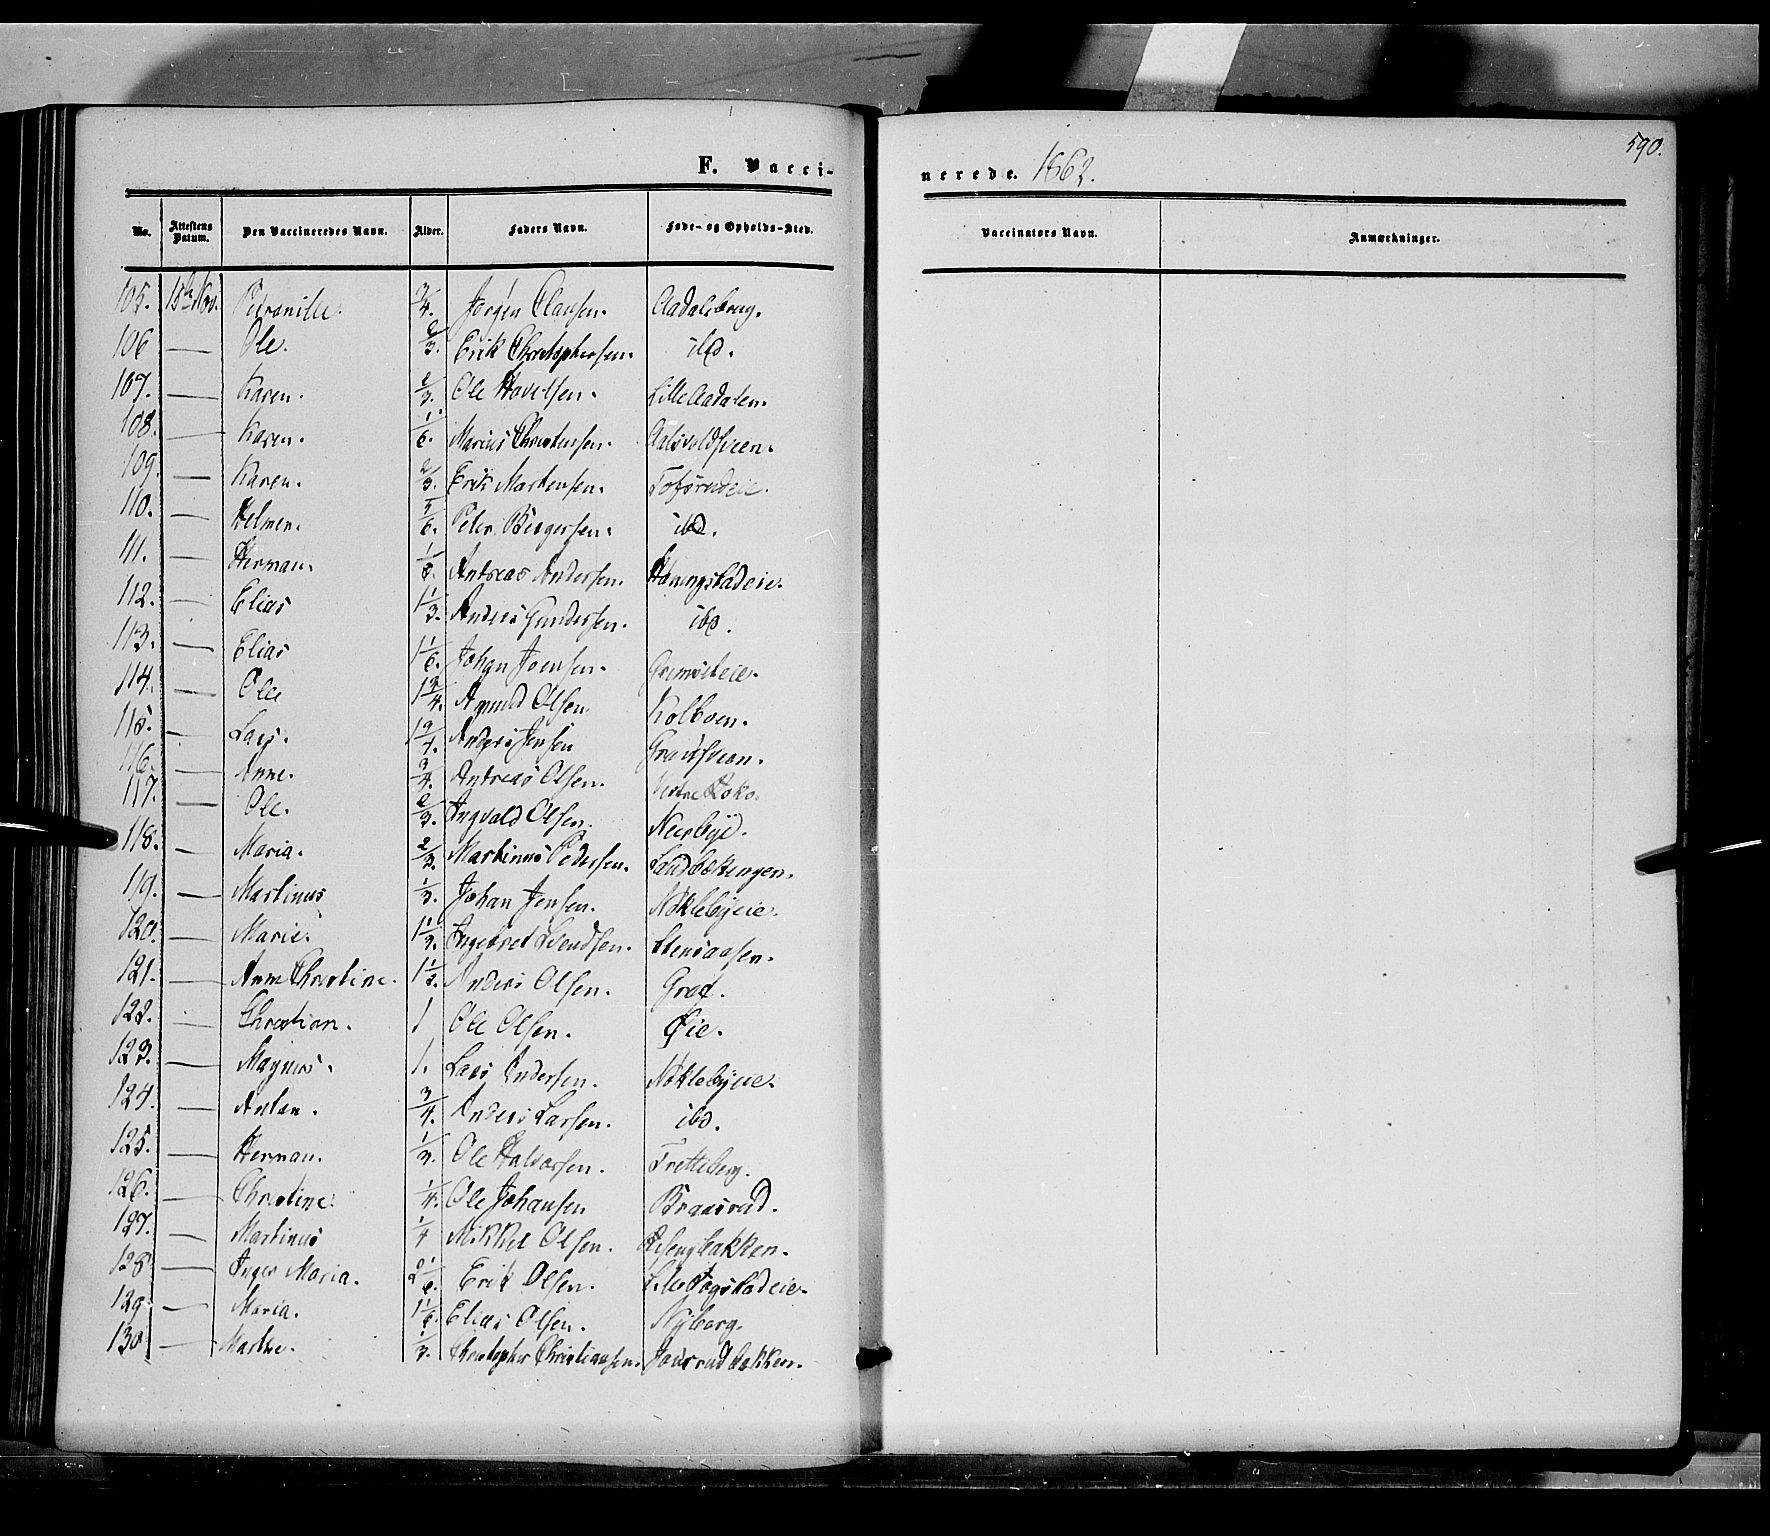 590.
F. Vaccinerede. 1862.
No. Attestens Datum. Den Vaccineredes Navn. Alder. Faders Navn. Føde- og Opholds-Sted. Vaccinators Navn. Anmærkninger.
105. 15de Nov. Petronille. 3/4. Jørgen Clausen. Aadalsbrug.
106 — Ole. 2/3. Erik Christophersen. ibd.
107. — Karen. 2/3. Ole Hovelsen. Lille Aadalen.
108. — Karen. 1/6. Marius Christensen.
109. — Karen. 2/3. Erik Martensen. Tofsrudeie.
110. — Helmer. 5/6. Peter Birgersen. ibd.
111. — Herman. Andreas Andersen.
112. — Elias 1 1/3. Anders Gundersen. ibd.
113. — Elias 1 1/6. Johan Joensen. Grimsteie.
114. — Ole 1 3/4. Amund Olsen Kolboen.
115. — Lars. Anders Jensen
116. — Anne. 3/4. Andreas Olsen. Vestre
117. — Ole. 2/3. Ingvald Olsen. Neerbye.
118. — Maria. 2/3. Martinus Pedersen. Sandbækengen.
119. — Martinus 1/3. Johan Jensen. Nøklebyeie.
120. — Marie. 1 1/3. Ingebret Svendsen. Stensaasen.
121. — Anne Christine. 1 1/3. Anders Olsen. Grøt.
122. — Christian. 1 Ole Olsen. Øie.
123. — Magnus. 1. Lars Andersen. Nøklebyeie.
124. — Anton. 3/4. Anders Larsen. ibd.
125. — Herman. 1/3. Ole Halvorsen. Tretteberg.
126. — Christine. 1/4. Ole Johansen Braasrud.
127. — Martinus 1/4 Mikkel Olsen.
128 — Inger Maria. 2 1/6. Erik Olsen. Lille
129. — Maria. 1 1/6. Elias Olsen. Nyborg.
130 — Marthe. 1/3. Christopher Christiansen.